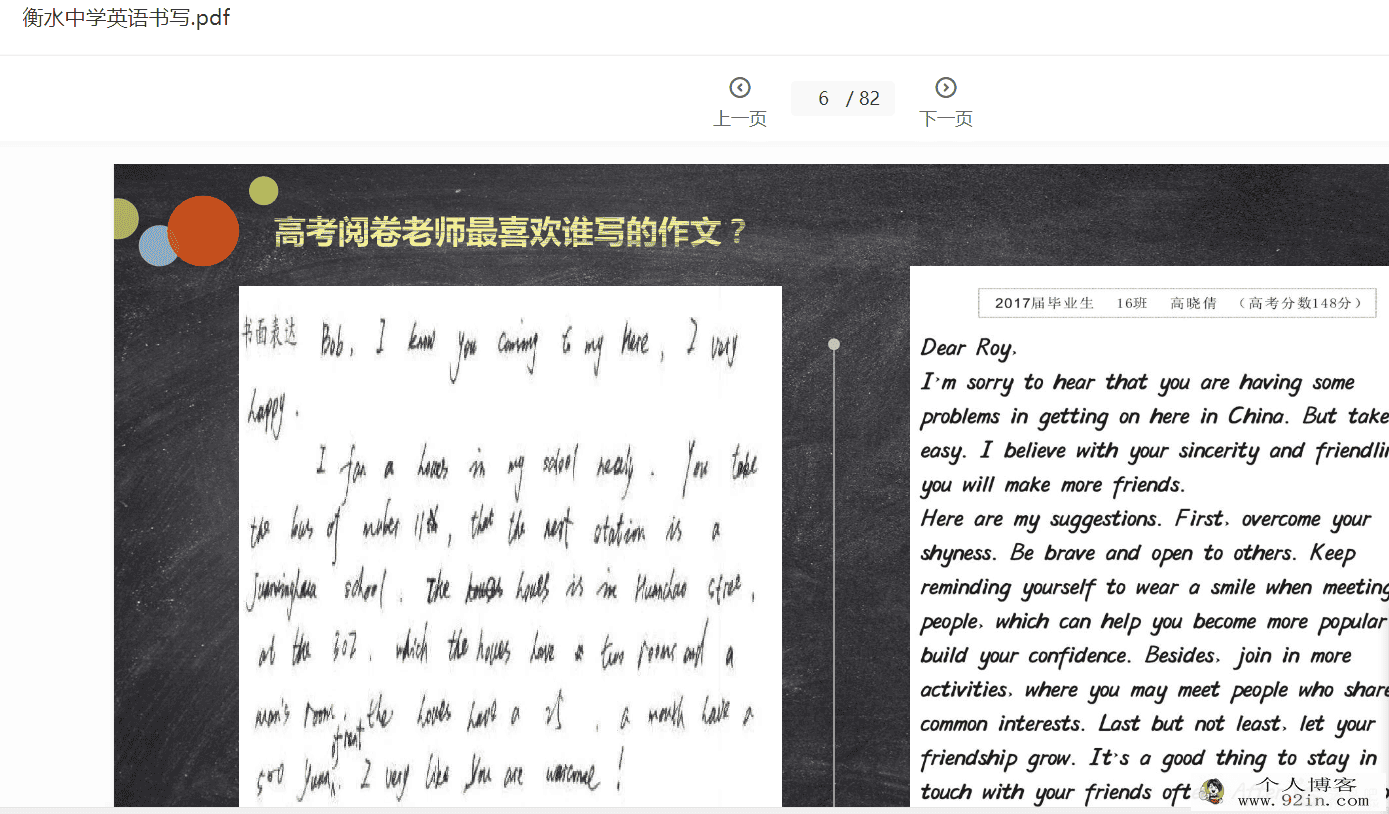 衡水中学英语书写.pdf
上一页
6 / 82
下一页
高考阅卷老师最喜欢谁写的作文？
书面表达 Bob, I know you coming to my here, I very
happy.
I fan a houes in my school nearly. You take
the bus of nuber 11th, that the next station is a
school. The houes is in stree,
at the 302. which the houes have a two rooms and a
man's room, the houes have a 25, a month have a
of rent
500 Yuan, I very like You are !
2017届毕业生 16班 高晓倩 （高考分数148分）
Dear Roy,
I'm sorry to hear that you are having some
problems in getting on here in China. But take
easy. I believe with your sincerity and friendlin
you will make more friends.
Here are my suggestions. First, overcome your
shyness. Be brave and open to others. Keep
reminding yourself to wear a smile when meeting
people, which can help you become more popular
build your confidence. Besides, join in more
activities, where you may meet people who share
common interests. Last but not least, let your
friendship grow. It's a good thing to stay in
touch with your friends oft
个人博客
www.92in.com